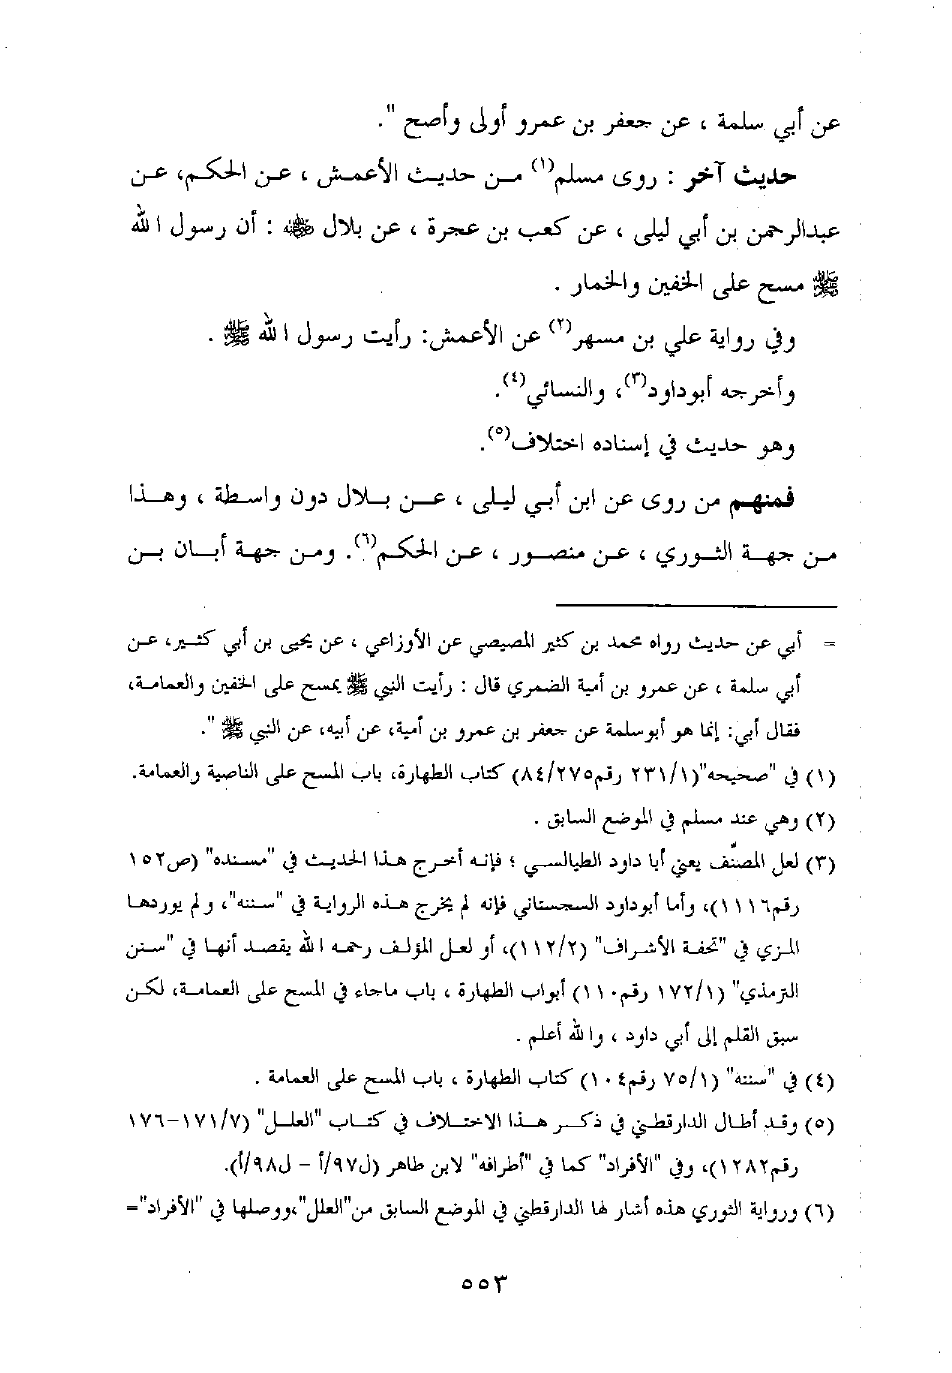 عن أبي سلمة ، عن جعفر بن عمرو أولى وأصح ".
حديث آخر : روى مسلم(١) من حديث الأعمش ، عن الحكم، عن
عبدالرحمن بن أبي ليلى ، عن كعب بن عجرة ، عن بلال ﵁ : أن رسول الله
ﷺ مسح على الخفين والخمار .
وفي رواية علي بن مسهر(٢) عن الأعمش: رأيت رسول الله ﷺ .
وأخرجه أبوداود(٣)، والنسائي(٤).
وهو حديث في إسناده اختلاف(٥).
فمنهم من روى عن ابن أبي ليلى ، عن بلال دون واسطة ، وهذا
من جهة الثوري ، عن منصور ، عن الحكم(٦). ومن جهة أبان بن
= أبي عن حديث رواه محمد بن كثير المصيصي عن الأوزاعي ، عن يحيى بن أبي كثير، عن
أبي سلمة ، عن عمرو بن أمية الضمري قال : رأيت النبي ﷺ يمسح على الخفين والعمامة،
فقال أبي: إنما هو أبوسلمة عن جعفر بن عمرو بن أمية، عن أبيه، عن النبي ﷺ ".
(١) في "صحيحه"(٢٣١/١ رقم٨٤/٢٧٥) كتاب الطهارة، باب المسح على الناصية والعمامة.
(٢) وهي عند مسلم في الموضع السابق .
(٣) لعل المصنِّف يعني أبا داود الطيالسي ؛ فإنه أخرج هذا الحديث في "مسنده" (ص١٥٢
رقم١١١٦)، وأما أبوداود السجستاني فإنه لم يخرج هذه الرواية في "سننه"، ولم يوردها
المزي في "تحفة الأشراف" (١١٢/٢)، أو لعل المؤلف رحمه الله يقصد أنها في "سنن
الترمذي" (١٧٢/١ رقم١١٠) أبواب الطهارة ، باب ماجاء في المسح على العمامة، لكن
سبق القلم إلى أبي داود ، والله أعلم .
(٤) في "سننه" (٧٥/١ رقم١٠٤) كتاب الطهارة ، باب المسح على العمامة .
(٥) وقد أطال الدارقطني في ذكر هذا الاختلاف في كتاب "العلل" (١٧١/٧-١٧٦
رقم١٢٨٢)، وفي "الأفراد" كما في "أطرافه" لابن طاهر (ل٩٧/أ - ل٩٨/أ).
(٦) ورواية الثوري هذه أشار لها الدارقطني في الموضع السابق من"العلل"،ووصلها في "الأفراد"=
٥٥٣